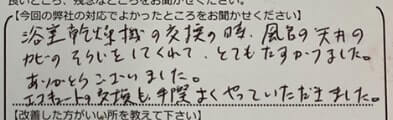 良いところ、残念なところをお聞かせください。
【今回の弊社の対応でよかったところをお聞かせください】
浴室乾燥機の交換の時、風呂の天井の
カビのそうじをしてくれて、とてもたすかりました。
ありがとうございました。
エコキュートの交換も手際よくやっていただきました。
【改善した方がいい所を教えて下さい】